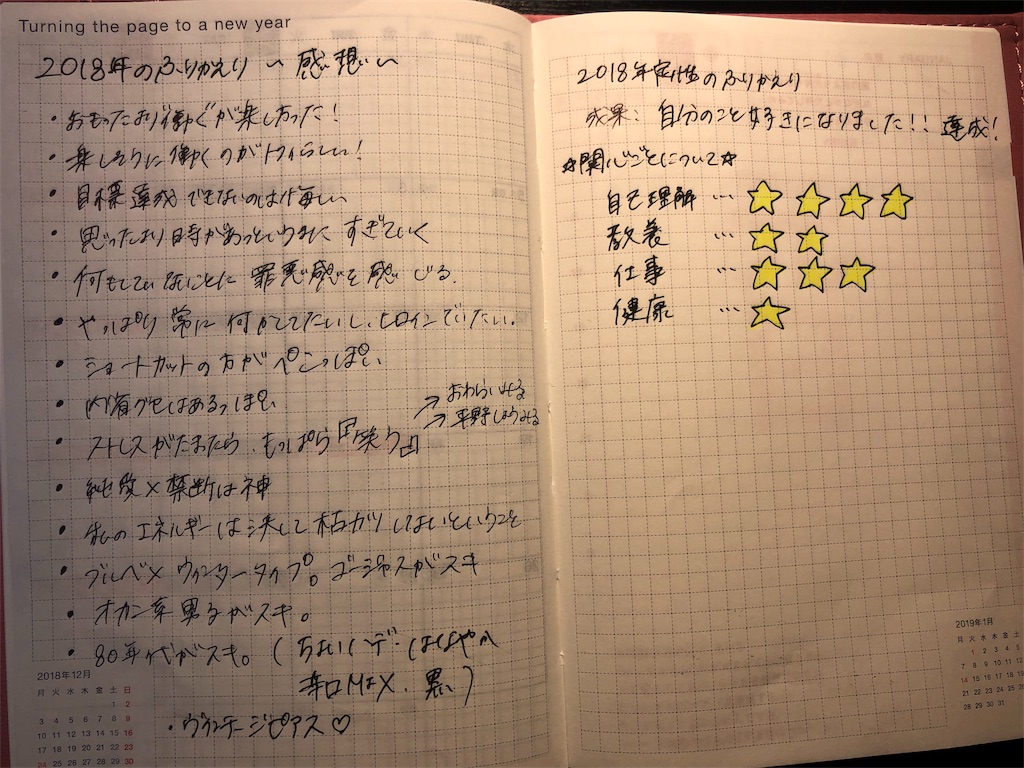 Turning the page to a new year
2018年のふりかえり 〜 感想 〜
・おもったより働くが楽しかった!
・楽しそうに働くのが らしい!
・目標達成できないのは 悔しい
・思ったより時があっというまに すぎていく
・何もしていないことに 罪悪感を感じる.
・やっぱり 常に 何かしてたいし、ヒロインでいたい.
・ショートカットの方が ぺこっぽい
・内省グセはあるっぽい
・ストレスがたまたら、もっぱら『笑う』
→ おわらいみる
→ 平野しょうみる
・純愛×禁断は神
・私のエネルギーは決して枯ガツしないということ
・ブルベ× ウィンタータイプ。ゴージャスがスキ
・オカン系男子がスキ。
・80年代がスキ。( はなやか
辛口MIX、黒い)
・ヴィンテージピアス♡
2018年12月
月 火 水 木 金 土 日
1 2
3 4 5 6 7 8 9
10 11 12 13 14 15 16
17 18 19 20 21 22 23
24 25 26 27 28 29 30
2018年定性のふりかえり
成果: 自分のこと好きになりました!! 達成!
☆関心ごとについて☆
自己理解 … ☆☆☆☆
教養 … ☆☆
仕事 … ☆☆☆
健康 … ☆
2019年1月
月 火 水 木 金 土
1 2 3 4 5
7 8 9 10 11 12
14 15 16 17 18 19
21 22 23 24 25 26
28 29 30 31